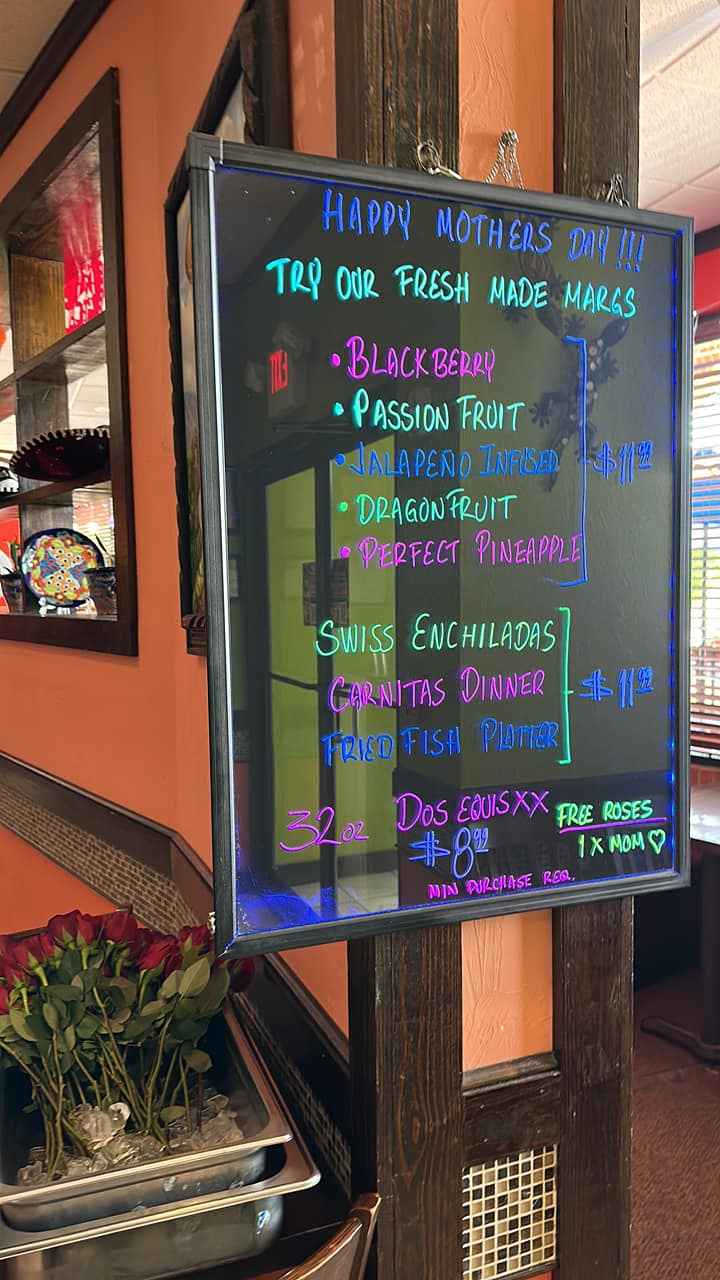 HAPPY MOTHERS DAY!!!
TRY OUR FRESH MADE MARGS
• BLACKBERRY
• PASSION FRUIT
• JALAPEÑO INFUSED
• DRAGONFRUIT
• PERFECT PINEAPPLE
$11.99
SWISS ENCHILADAS
CARNITAS DINNER
FRIED FISH PLATTER
$11.99
32oz DOS EQUIS XX
$8.99
MIN PURCHASE REQ.
FREE ROSES
1 X MOM ♡
EXIT